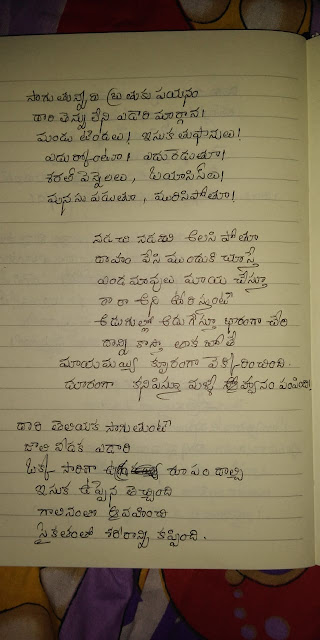 సాగుతున్నది బ్రతుకు పయనం
దారి తెన్ను లేని ఎడారి మార్గాన!
మండుటెండలు! ఇసుక తుఫానులు!
ఎదుర్కొంటూ! ఎదురీదుతూ!
శరత్ వెన్నెలలు, ఒయాసిస్‌లు!
మనసు పడుతూ, మురిసిపోతూ!
నడచి నడచి అలసి పోతూ
దాహం వేసి ముందుకి చూస్తే
ఎండమావులు మాయ చేస్తూ
రా రా అని ఊరిస్తుంటే
అడుగుల్లో అడుగేస్తూ భారంగా చేరి
దాన్ని కాస్తా తాక బోతే
మాయమయ్యి క్రూరంగా వెక్కిరించింది.
దూరంగా కనిపిస్తూ మళ్ళీ ఆహ్వానం పంపింది!
దారి తెలియక సాగుతుంటే
జాలి వీడక ఎడారి
ఒక్క సారిగా రూపం దాల్చి
ఇసుక ఉప్పెన తెచ్చింది
గాలినంతా ఆవహించి
సైకతంతో శరీరాన్ని కప్పింది.